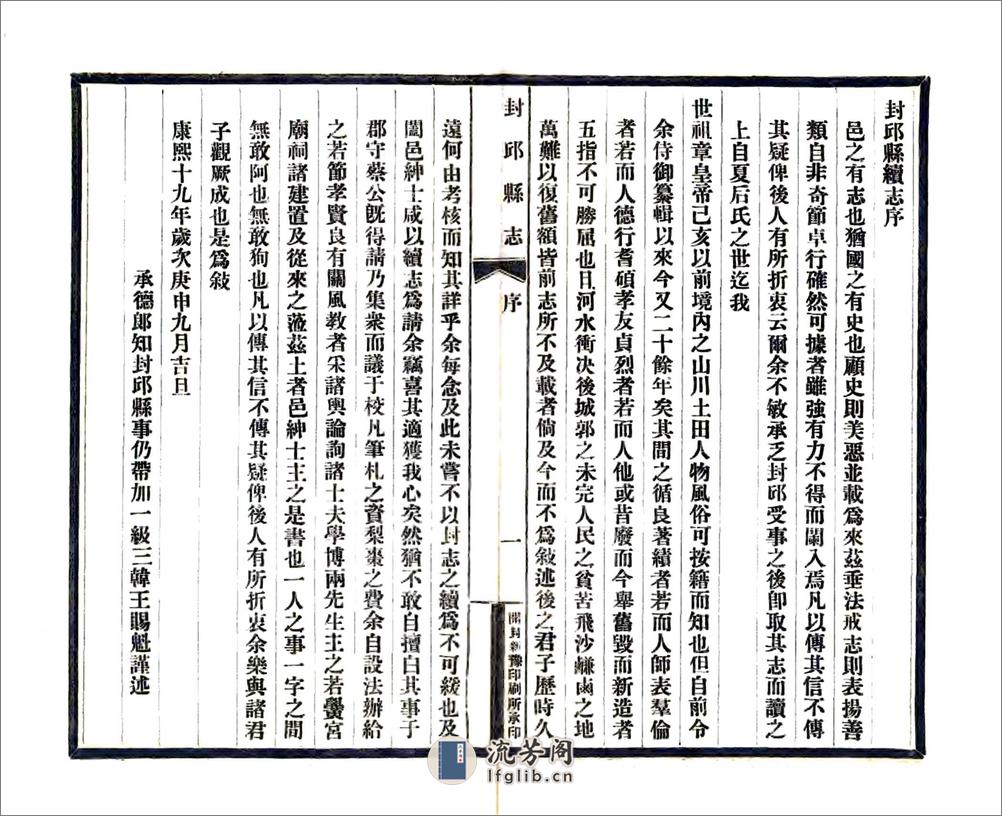 封邱縣續志序
邑之有志也猶國之有史也顧史則美惡並載爲來茲垂法戒志則表揚善
類自非奇節卓行確然可據者雖強有力不得而闌入焉凡以傳其信不傳
其疑俾後人有所折衷云爾余不敏承乏封邱受事之後卽取其志而讀之
上自夏后氏之世迄我
世祖章皇帝己亥以前境內之山川土田人物風俗可按籍而知也但自前令
余侍御纂輯以來今又二十餘年矣其間之循良著績者若而人師表羣倫
者若而人德行耆碩孝友貞烈者若而人他或昔廢而今舉舊毀而新造者
五指不可勝屈也且河水衝決後城郭之未完人民之貧苦飛沙鹻鹵之地
萬難以復舊額皆前志所不及載者倘及今而不爲敍述後之君子歷時久
封邱縣志
序
一
開封新豫印刷所承印
遠何由考核而知其詳乎余每念及此未嘗不以封志之續爲不可緩也及
闔邑紳士咸以續志爲請余竊喜其適獲我心矣然猶不敢自擅白其事于
郡守蔡公旣得請乃集衆而議于校凡筆札之資梨棗之費余自設法辦給
之若節孝賢良有關風教者采諸輿論詢諸士夫學博兩先生主之若黌宮
廟祠諸建置及從來之蒞茲土者邑紳士主之是書也一人之事一字之間
無敢阿也無敢狥也凡以傳其信不傳其疑俾後人有所折衷余樂與諸君
子觀厥成也是爲敍
康熙十九年歲次庚申九月吉旦
承德郎知封邱縣事仍帶加一級三韓王賜魁謹述
流芳阁
lfglib.cn